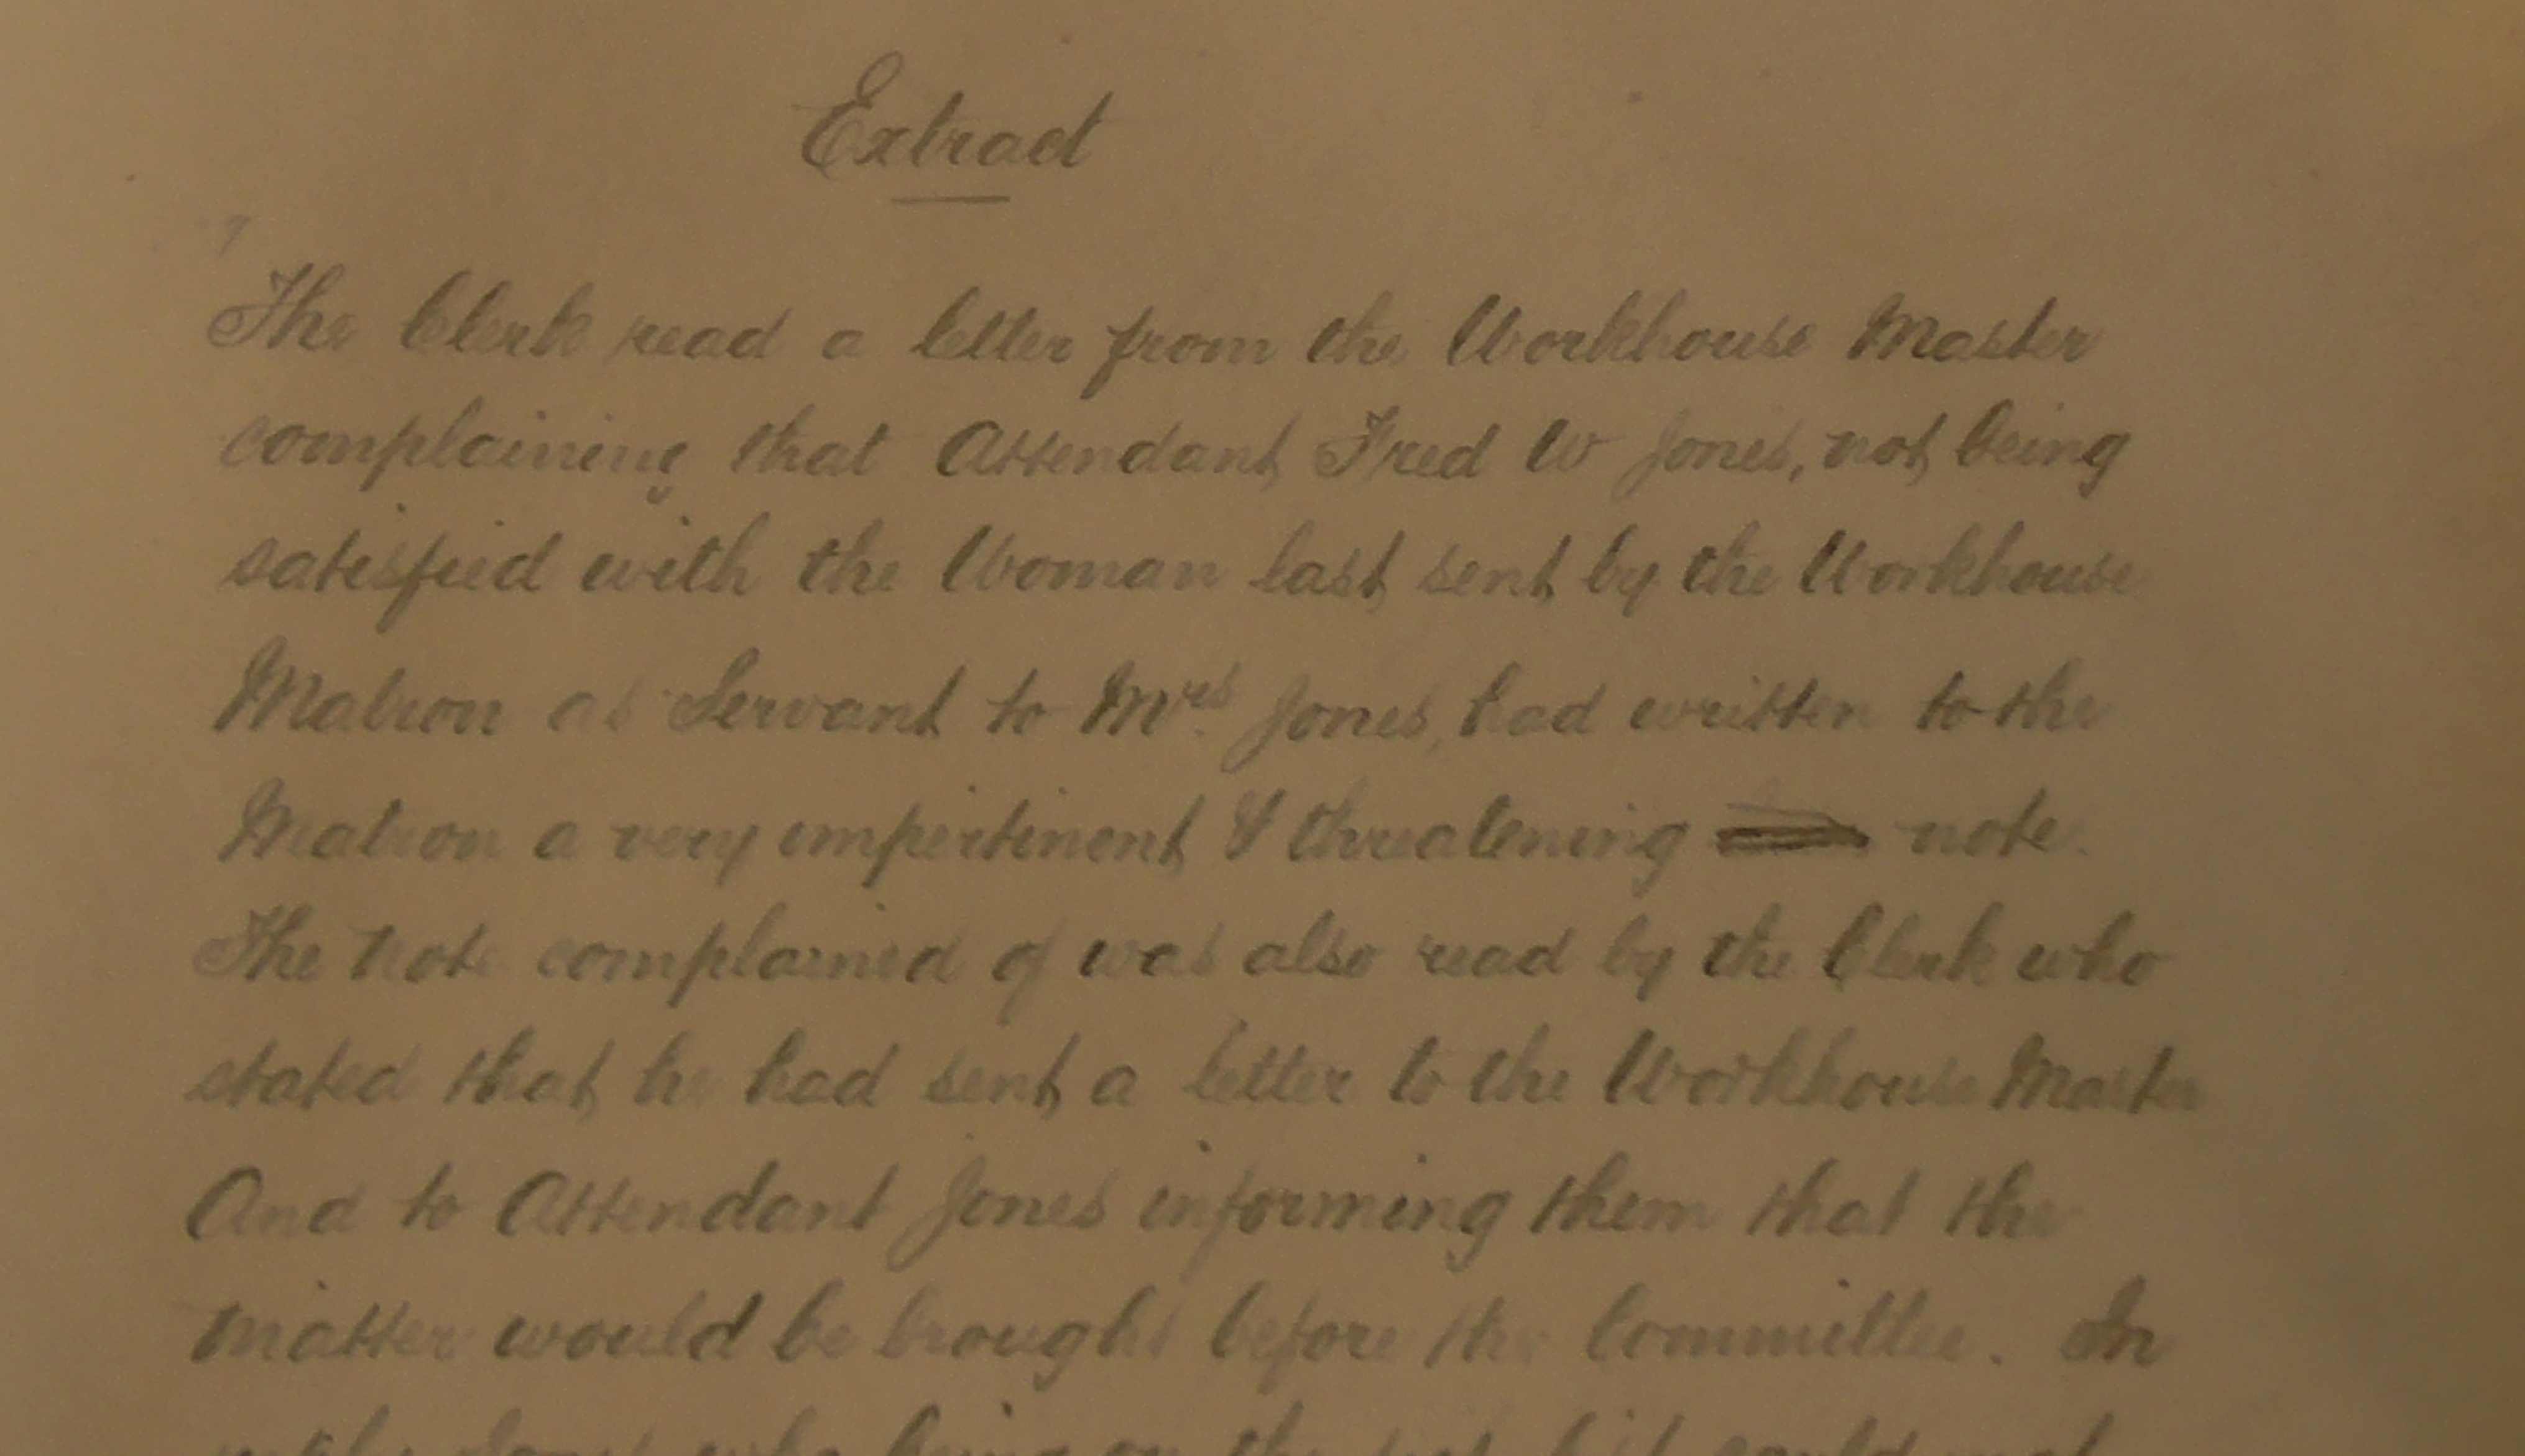 Extract
The Clerk read a letter from the Workhouse Master
complaining that Attendant Fred W Jones, not being
satisfied with the Woman last sent by the Workhouse
Matron as Servant to Mrs. Jones, had written to the
Matron a very impertinent & threatening note.
The note complained of was also read by the Clerk who
stated that he had sent a letter to the Workhouse Master
And to Attendant Jones informing them that the
matter would be brought before the Committee. In
reply Jones who being on the